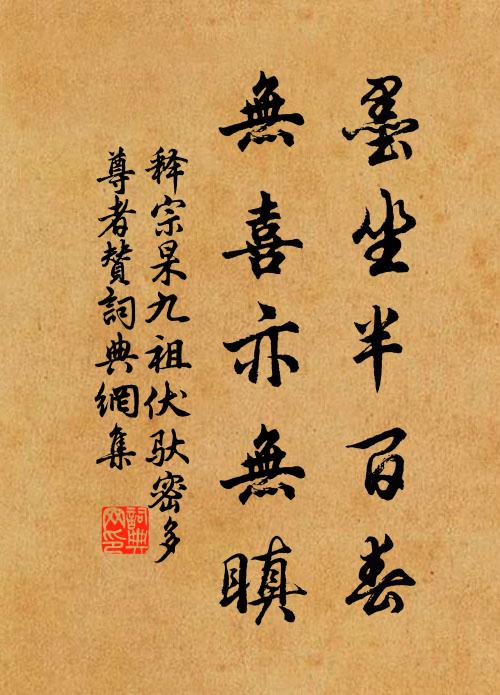 墨坐半百春
無喜亦無瞋
释宗杲九祖伏驮密多
尊者贊詞典網集
詞典